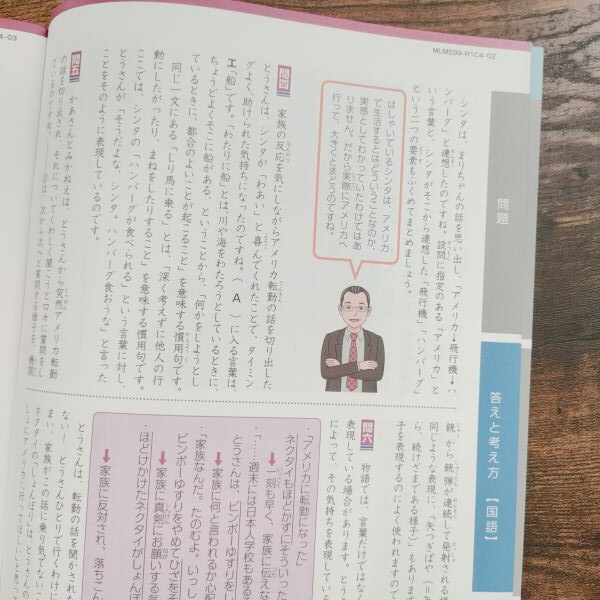 MLM599-H1C4-02
4-03
問題
答えと考え方 【国語】
シンタは、まりちゃんの話を思い出し、「アメリカ→飛行機→ハ
ンバーグ」と連想したのですね。設問に指定のある「アメリカ」と
いう言葉と、シンタがそこから連想した「飛行機」「ハンバーグ」
という二つの要素もふくめてまとめましょう。
はしゃいでいるシンタは、アメリカ
で生活するとはどういうことなのか、
実感としてわかっていたわけではあ
りません。だから実際にアメリカへ
行って、大きくとまどうのですね。
問四 家族の反応を気にしながらアメリカ転勤の話を切り出した
とうさんは、シンタが「わあい」と喜んでくれたことで、タイミン
グよく、助けられた気持ちになったのですね。( A )に入る言葉は、
エ「船」です。「わたりに船」とは「川や海をわたろうとしているときに、
ちょうどよくそこに船がある、ということから、「何かをしようとし
ているときに、都合のよいことが起こること」を意味する慣用句です。
同じ一文にある「しり馬に乗る」とは、「深く考えずに他人の行
動にしたがったり、まねをしたりすること」を意味する慣用句です。
ここでは、シンタの「ハンバーグが食べられる」という言葉に対し、
とうさんが「そうだよな、シンタ。ハンバーグ食おうな」と言った
ことをそのように表現しているのです。
問五 かあさんとみかねえは、とうさんから突然アメリカ転勤
の話を切り出され、それについてくわしく聞こうと口々に質問をし
ているのですね。
は、次から次へと質問する様子を、機関
銃 から銃弾が連続して発射される様
同じような表現に、「矢つぎばや（＝
ら、続けざまである様子」もありま
子を表現するのによく使われますので
問六 物語では、言葉だけではな
表現している場合があります。とう
によって、その気持ちを表している
・「アメリカに転勤になった」
ネクタイもほどかずにそういった
➡一刻も早く、家族に伝えな
・「……週末には日本人学校もある
とうさんは、ビンボーゆすりをし
➡家族に何と言われるか心配
・「家族なんだ。たのむよ。いっし
ビンボーゆすりをやめてひざをそ
➡家族に真剣にお願いする
・ほどりかけたネクタイがしょんぼ
➡家族に反対され、落ちこん
とうさんは、転勤の話を聞かされた
ない― とうさんひとりで行くわけに
まい、家族がこの話に乗り気でないこ
ネクタイの「しょんぼり」は、